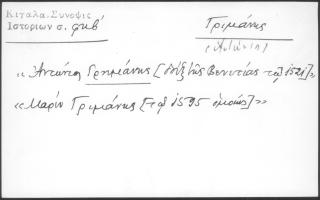 Κιγάλα. Σύνοψις
Ιστοριών σ. φκβ'
Γριμάνης
(Αντώνιος)
«Αντώνιο Γρημάνης [δόξ της Βενετίας τῷ 1521]»
«Μαρίν Γριμάνης [τῷ 1595 ὁμοίως]»